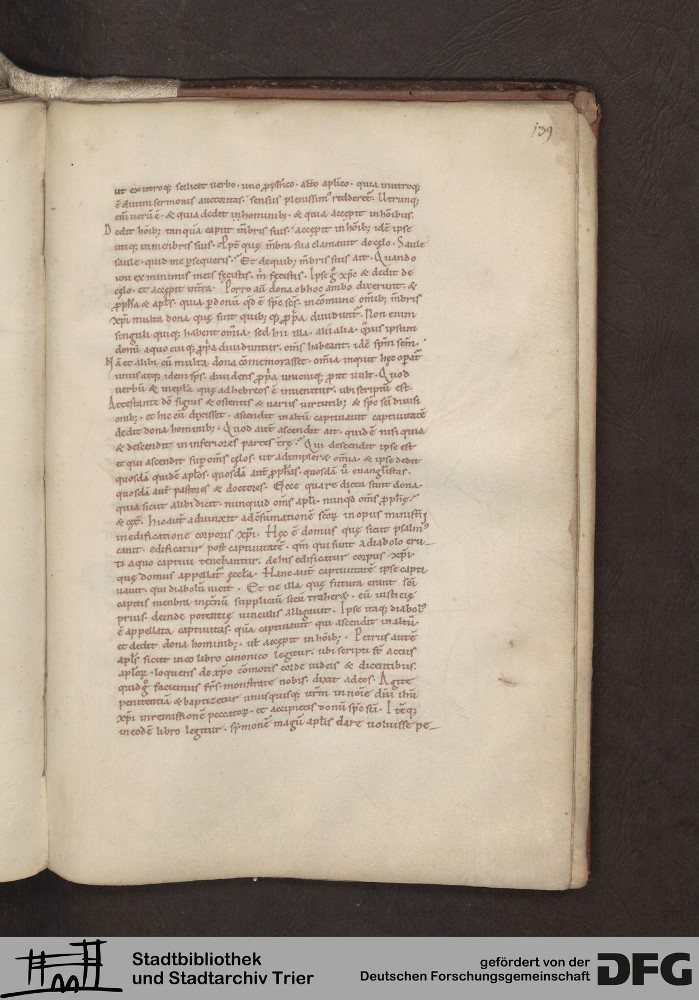 139
ut ex utroq; scilicet verbo . uno ꝓph̄ico . alt̄o apl̄ico . quia in utroq;
ē diuini sermonis auctoritas . sensus plenissim᷒ redderet᷑ . Utrunq;
eni᷑ uerū ē . & quia dedit in hominib; . & quia accepit in hōibus .
Dedit hōib; . tanquā caput m̄bris suis . accepit in hōib; . idē ipse
utiq; in menbris suis . ꝓpt̄ quę m̄bra sua clamauit de cęlo . Saule
saule . quid me ꝑsequeris . Et de quib; m̄bris suis ait . Quando
uni ex minimis meis fecistis . m̄ fecistis . Ipse gͦ xp̄c & dedit de
cęlo . et accepit in t̄ra . Porro aū dona ob hoc ambo dixerunt . &
ꝓph̄a & apl̄s . quia ꝑ donū qd̄ ē sp̄c sc̄s . in comune om̄ib; m̄bris
xp̄i multa dona quę sunt quib; q; ꝓpͥa diuidunt᷑ . Non enim
singuli quiq; habent om̄ia . sed hii illa . alii alia . quāuis ipsum
donū a quo cuiq; ꝓpͥa diuiduntur . om̄s habeant . idē sp̄m sc̄m .
Nā et alibi cū multa dona cōmemorasset . om̄ia inquit hęc opat᷑
unus atq; idem sp̄s . diuidens ꝓpͥa unicuiq; ꝓut uult . Quod
uerbū & in epl̄a quę ad hebreos ē inuenitur . ubi scriptū est .
Attestante dō signis & ostentis & uariis uirtutib; & sp̄c sc̄i diuisi
onib; . et hic cū dixisset . ascendit in altū captiuauit captiuitatē
dedit dona hominib; . Quod aut̄ ascendit ait . quid ē nisi quia
& descendit in inferiores partes t̄rę . Qui descendit ipse est
et qui ascendit suꝑ om̄s cęlos . ut adimpleret om̄ia . & ipse dedit
quosdā quidē apl̄os . quosdā aut̄ ꝓph̄as . quosdā u̅ euangelistas .
quosdā aut̄ pastores & doctores . Ecce quare dicta sunt dona .
quia sicut alibi dicit . nunquid om̄s apl̄i . nunqd̄ om̄s ꝓph̄ę .
& cęt̄ . hic aut̄ adiunxit ad c̄sūmationē sc̄oꝝ in opus ministͥi
in edificatione corporis xp̄i . Hęc ē domus quę sicut psalm᷒
canit . edificatur post captiuitatē . qm̄ qui sunt a diabolo eru-
ti a quo captiui tenebantur . de his edificatur corpus xp̄i .
quę domus appellat᷑ ęccl̄a . Hanc aut̄ captiuitatē ipse capti
uauit . qui diabolū uicit . Et ne illa quę futura erant sc̄i
capitis menbra in ęt̄nū suppliciū secū traheret . eū iusticię
prius . deinde potentię uinculis alligauit . Ipse itaq; diabol᷒
ē appellata captiuitas . quā captiuauit qui ascendit in altū
et dedit dona hominib; . ul̄ accepit in hōib; . Petrus autē
apl̄s sicut in eo libro canonico legitur . ubi scripti st̄ actus
apl̄oꝝ . loquens de xp̄o cōmotis corde iudeis & dicentibus .
quid gͦ faciemus fr̄s . monstrate nobis . dixit ad eos . Agite
penitentiā & baptizetur unusquisq; ur̄m in noīe dn̄i ihū
xp̄i in remissionē peccatoꝝ . et accipietis donū sp̄c sc̄i . Itēq;
in eodē libro legitur . symonē magū apl̄is dare uoluisse pe-
Stadtbibliothek
und Stadtarchiv Trier
gefördert von der
Deutschen Forschungsgemeinschaft
DFG